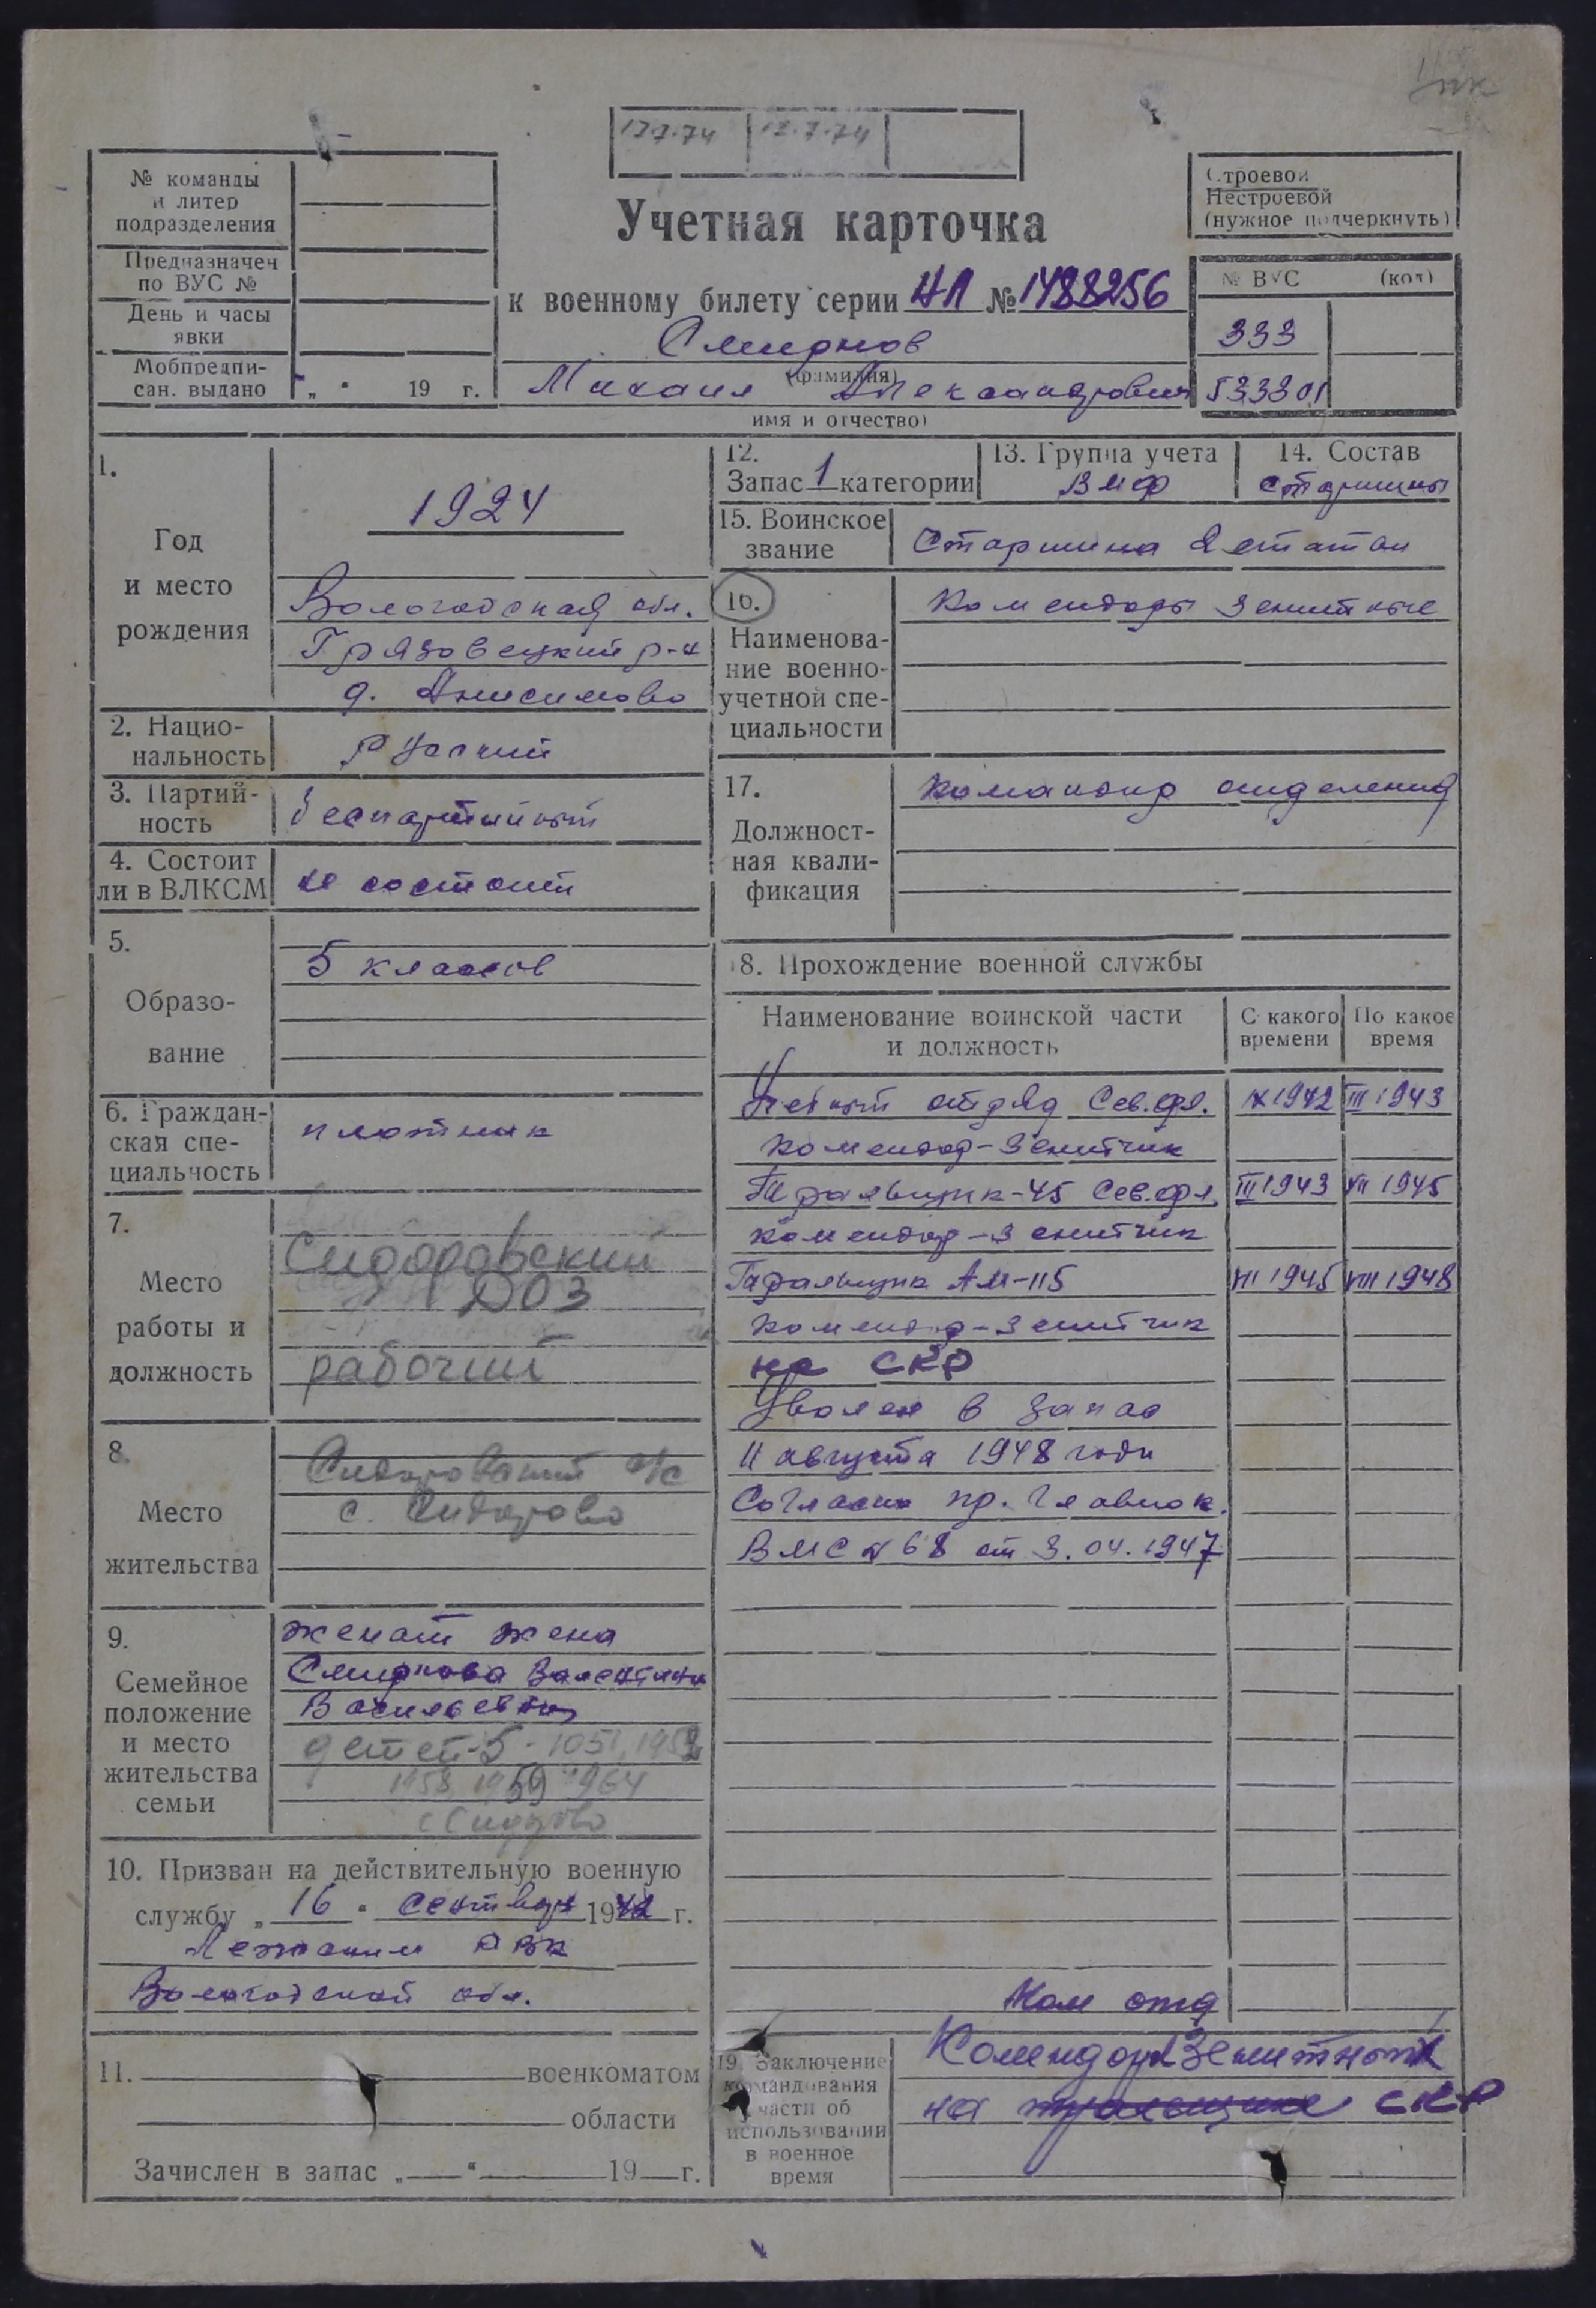 12.7.74 12.7.74
№ команды
и литер
подразделения
Предназначен
по ВУС №
День и часы
явки
Мобпредпи-
сан. выдано „ " 19 г.
Учетная карточка
к военному билету серии НЛ № 1488256
Смирнов
(фамилия)
Михаил Александрович
имя и отчество)
Строевой
Нестроевой
(нужное подчеркнуть)
№ ВУС (код)
333
53301
1.
Год
и место
рождения
1924
Вологодская обл.
Грязовецкий р-н
д. Анисимово
2. Нацио-
нальность
Русский
3. Партий-
ность
беспартийный
4. Состоит
ли в ВЛКСМ
не состоит
5.
Образо-
вание
5 классов
6. Граждан-
ская спе-
циальность
плотник
7.
Место
работы и
должность
Сидоровский
ДОЗ
рабочий
8.
Место
жительства
Сидоровский с/с
с. Сидорово
9.
Семейное
положение
и место
жительства
семьи
женат жена
Смирнова Валентина
Васильевна
детей-5
1958, 1959 1964
с Сидорово
10. Призван на действительную военную
службу „ 16 " сентября 1942 г.
РВК
Вологодской обл.
11. военкоматом
области
Зачислен в запас „ " 19 г.
12.
Запас 1 категории
13. Группа учета
ВМФ
14. Состав
старшины
15. Воинское
звание
Старшина 2 статьи
16.
Наименова-
ние военно-
учетной спе-
циальности
Комендоры зенитные
17.
Должност-
ная квали-
фикация
командир отделения
18. Прохождение военной службы
Наименование воинской части
и должность
С какого
времени
По какое
время
Учебный отряд Сев.фл. IX 1942 III 1943
комендор-зенитчик
Тральщик-45 Сев.фл. III 1943 VII 1945
комендор-зенитчик
Тральщик АМ-115 VII 1945 VIII 1948
комендор-зенитчик
на СКР
Уволен в запас
11 августа 1948 года
Согласно пр. Главнок.
ВМС № 68 от 3.04.1947
Ком отд
19. Заключение
командования
части об
использовании
в военное
время
Комендор Зенитный
на тральщике СКР